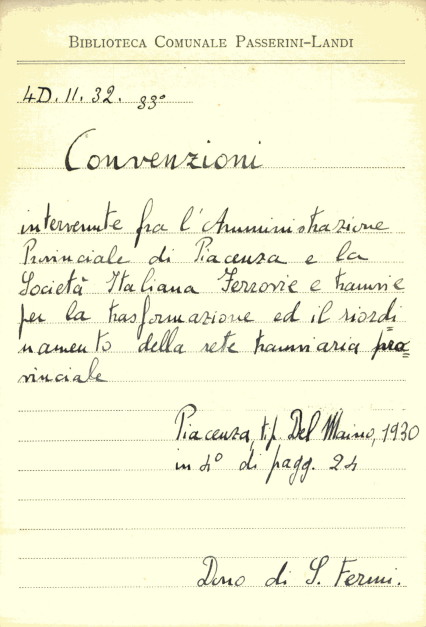 BIBLIOTECA COMUNALE PASSERINI-LANDI
4D. 11. 32. 33°
Convenzioni
intervenute fra l'Amministrazione
Provinciale di Piacenza e la
Società Italiana Ferrovie e tramvie
per la trasformazione ed il riordi
namento della rete tramviaria pro
vinciale
Piacenza, tip. Del Maino, 1930
in 4° di pagg. 24
Dono di S. Fermi.